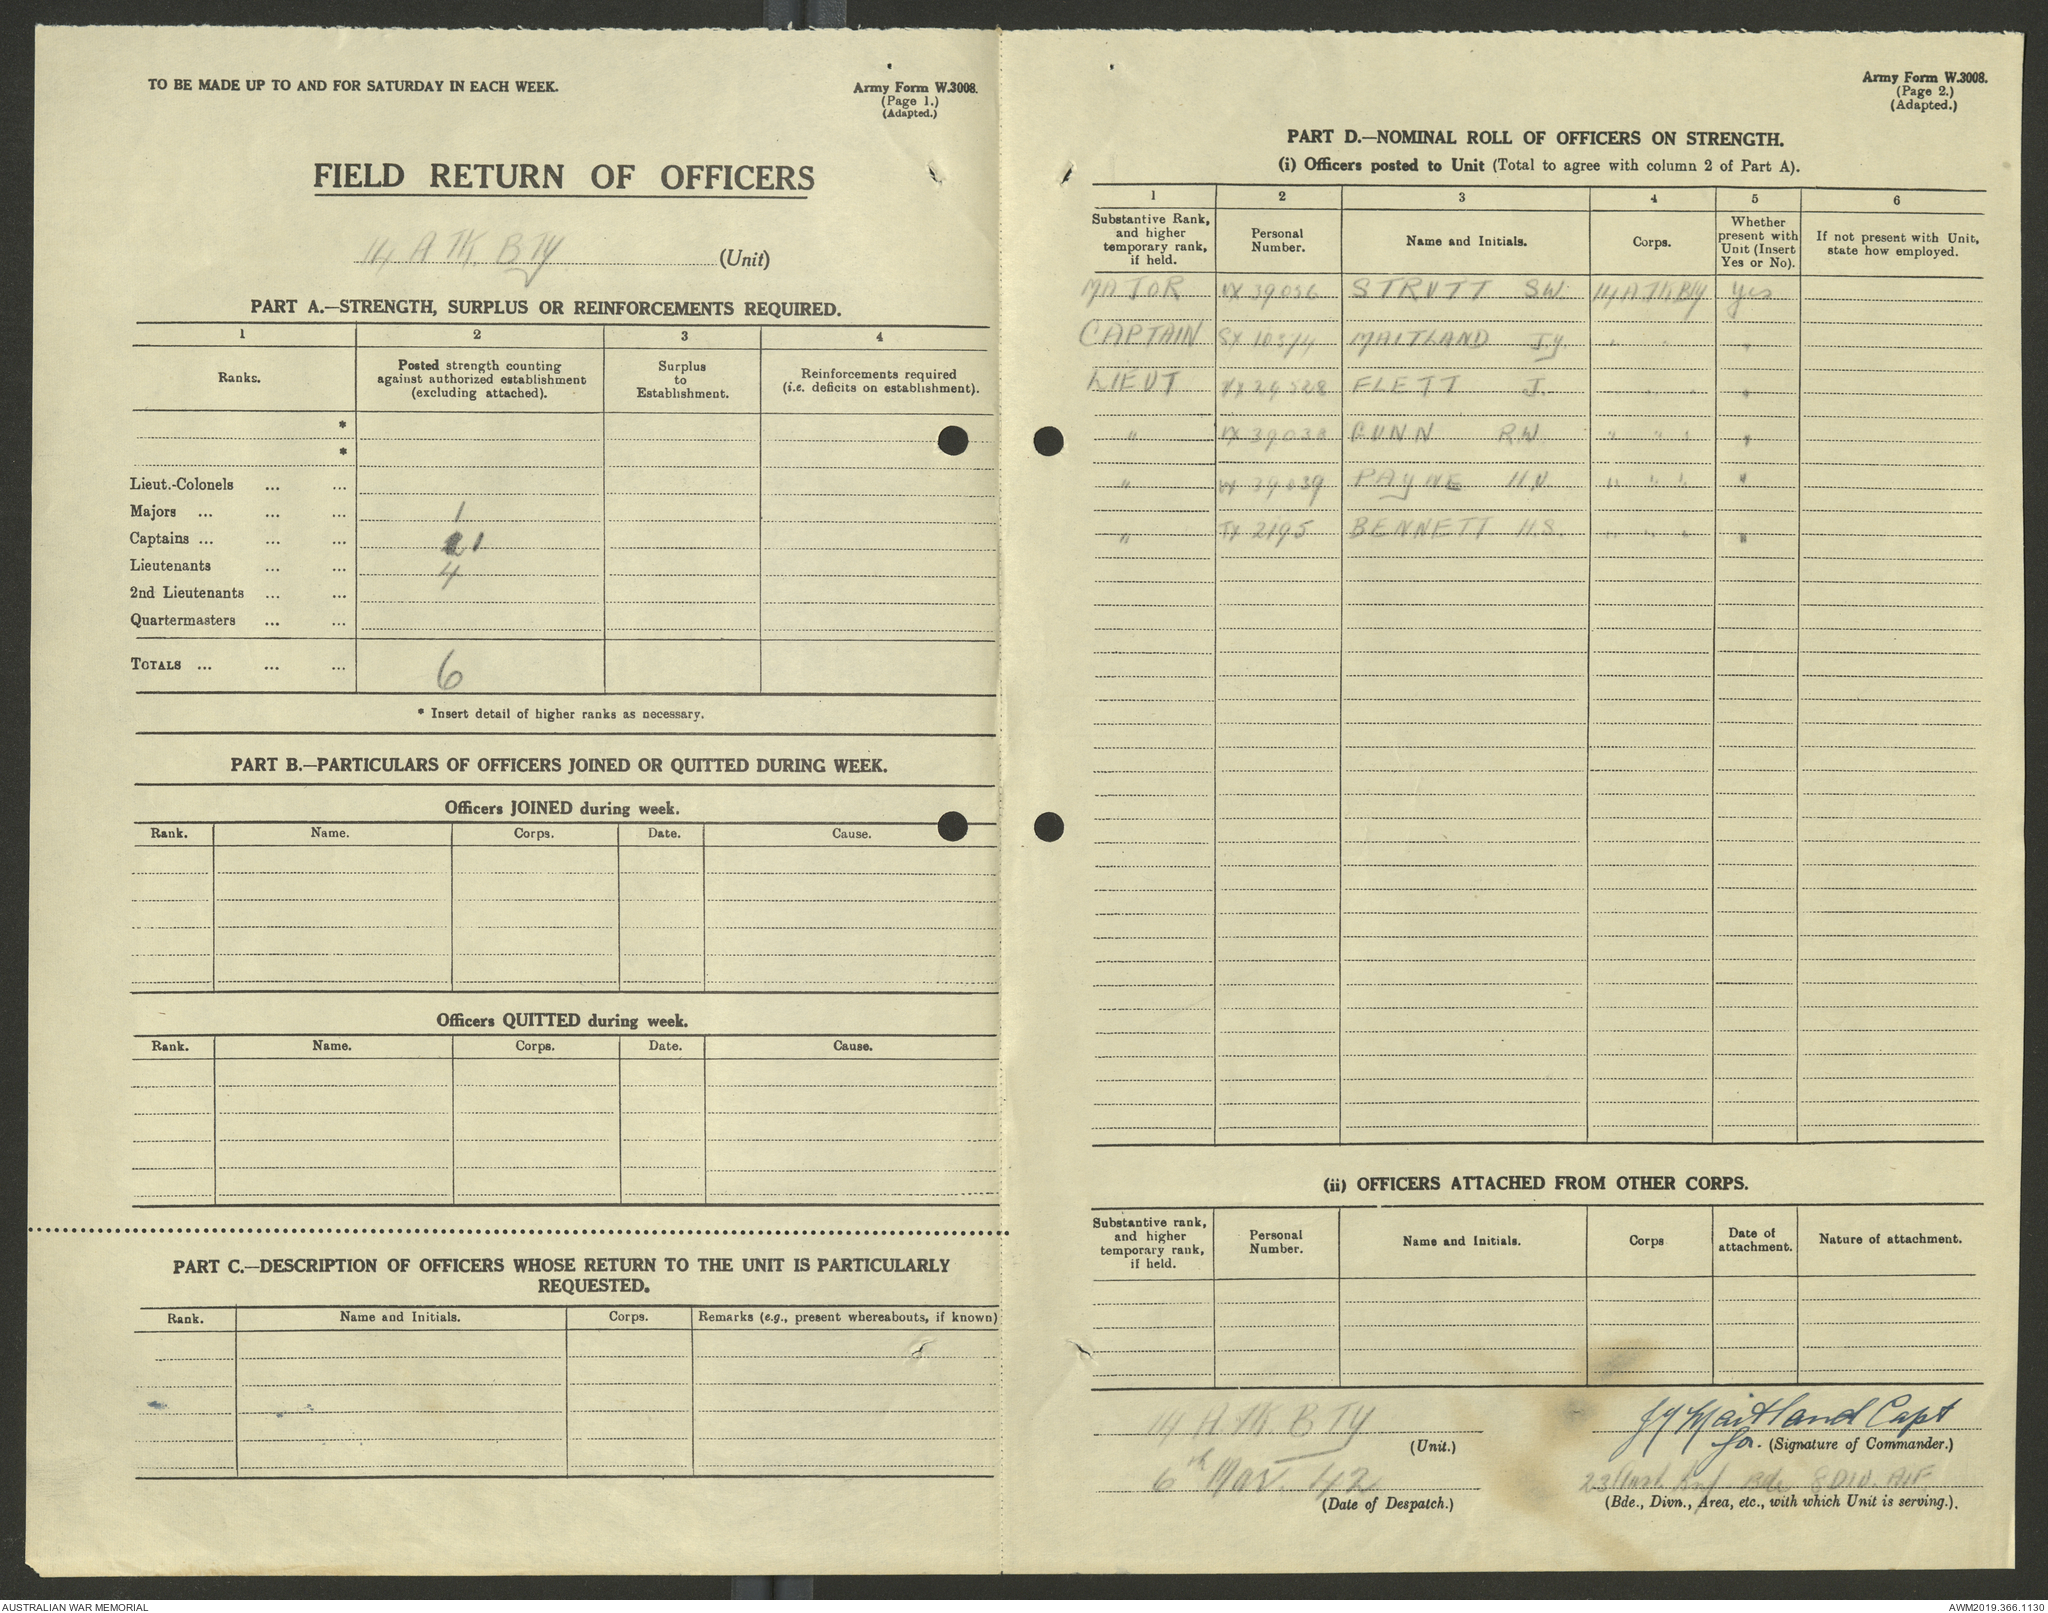 TO BE MADE UP TO AND FOR SATURDAY IN EACH WEEK.
Army Form W.3008.
(Page 1.)
(Adapted.)
FIELD RETURN OF OFFICERS
14 A TK. BTY (Unit)
PART A.—STRENGTH, SURPLUS OR REINFORCEMENTS REQUIRED.
1 2 3 4
Ranks.
Posted strength counting against authorized establishment (excluding attached).
Surplus to Establishment.
Reinforcements required (i.e. deficits on establishment).
*
*
Lieut.-Colonels ... ...
Majors ... ... ... 1
Captains ... ... ... 1
Lieutenants ... ... 4
2nd Lieutenants ... ...
Quartermasters ... ...
TOTALS ... ... ... 6
* Insert detail of higher ranks as necessary.
PART B.—PARTICULARS OF OFFICERS JOINED OR QUITTED DURING WEEK.
Officers JOINED during week.
Rank. Name. Corps. Date. Cause.
Officers QUITTED during week.
Rank. Name. Corps. Date. Cause.
PART C.—DESCRIPTION OF OFFICERS WHOSE RETURN TO THE UNIT IS PARTICULARLY
REQUESTED.
Rank. Name and Initials. Corps. Remarks (e.g., present whereabouts, if known)
Army Form W.3008.
(Page 2.)
(Adapted.)
PART D.—NOMINAL ROLL OF OFFICERS ON STRENGTH.
(i) Officers posted to Unit (Total to agree with column 2 of Part A).
1 2 3 4 5 6
Substantive Rank, and higher temporary rank, if held.
Personal Number.
Name and Initials.
Corps.
Whether present with Unit (Insert Yes or No).
If not present with Unit, state how employed.
MAJOR VX 39056 STRUTT SW. 14 A Tk Bty yes
CAPTAIN SX 10374 MAITLAND J.Y. " " "
LIEUT FLETT J. " " " "
" VX 39038 GUNN R.W. " " " "
" 39039 PAYNE H.V. " " " "
" TX 2195 BENNETT H.S. " " " "
(ii) OFFICERS ATTACHED FROM OTHER CORPS.
Substantive rank, and higher temporary rank, if held.
Personal Number.
Name and Initials.
Corps
Date of attachment.
Nature of attachment.
14 A.TK. BTY
(Unit.)
JY Maitland Capt
for. (Signature of Commander.)
6th Mar. 42
(Date of Despatch.)
23 Aust Inf Bde 8 DIV. AIF
(Bde., Divn., Area, etc., with which Unit is serving.).
AUSTRALIAN WAR MEMORIAL
AWM2019.366.1130